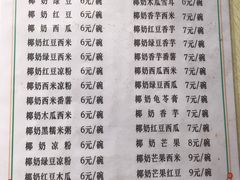 椰奶绿豆 6元/碗
椰奶红豆 6元/碗
椰奶西瓜 6元/碗
椰奶绿豆西米 6元/碗
椰奶红豆西米 6元/碗
椰奶绿豆凉粉 6元/碗
椰奶红豆凉粉 6元/碗
椰奶西米凉粉 6元/碗
椰奶西米番薯 6元/碗
椰奶木瓜西米 6元/碗
椰奶黑糯米粥 6元/碗
椰奶凉粉 6元/碗
椰奶红豆木瓜 6元/碗
椰奶木瓜雪耳 6元/碗
椰奶香芋西米 7元/碗
椰奶绿豆香芋 7元/碗
椰奶红豆香芋 7元/碗
椰奶香芋番薯 7元/碗
椰奶西瓜西米 7元/碗
椰奶龟苓膏 7元/碗
椰奶香芋 7元/碗
椰奶红豆西瓜 7元/碗
椰奶芒果 8元/碗
椰奶芒果西米 9元/碗
椰奶芒果红豆 9元/碗